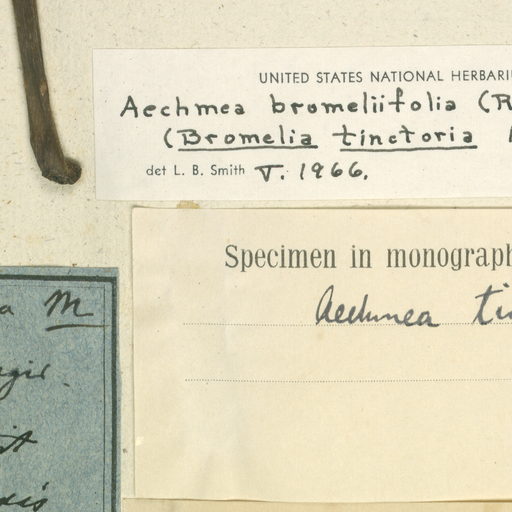 UNITED STATES NATIONAL HERBARI
Aechmea bromeliifolia (R
(Bromelia tinctoria
det L. B. Smith V. 1966.
Specimen in monograph
Aechmea ti
a M